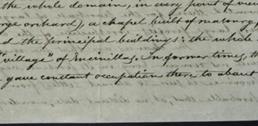 the whole domain, in every point of view
orchard), a chapel built of masonry,
the principal buildings: the whole
"village" of Inernillo. In former times, t
gave constant occupation there to about